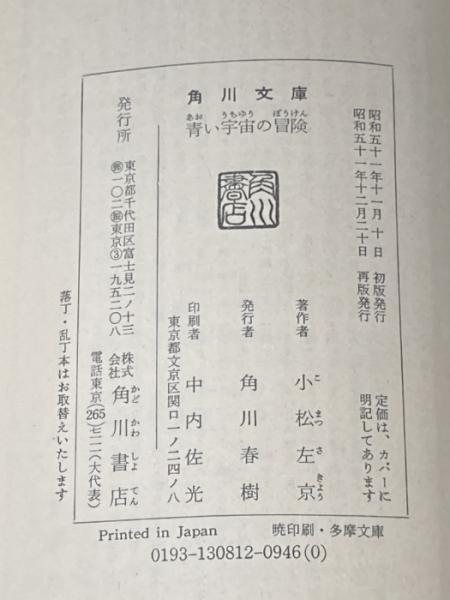 角川文庫
青い宇宙の冒険
あお うちゅう ぼうけん
昭和五十一年十一月十日 初版発行
昭和五十一年十二月二十日 再版発行
定価は、カバーに
明記してあります
著作者 小松左京
こ まつ さ きょう
発行者 角川春樹
印刷者 中内佐光
東京都文京区関口一ノ二四ノ八
角川書店
発行所
東京都千代田区富士見二ノ十三
一〇二 東京③一九五二〇八
株式会社 角川書店
かど かわ しょ てん
電話東京(265)七一一一(大代表)
落丁・乱丁本はお取替えいたします
Printed in Japan 暁印刷・多摩文庫
0193-130812-0946(0)